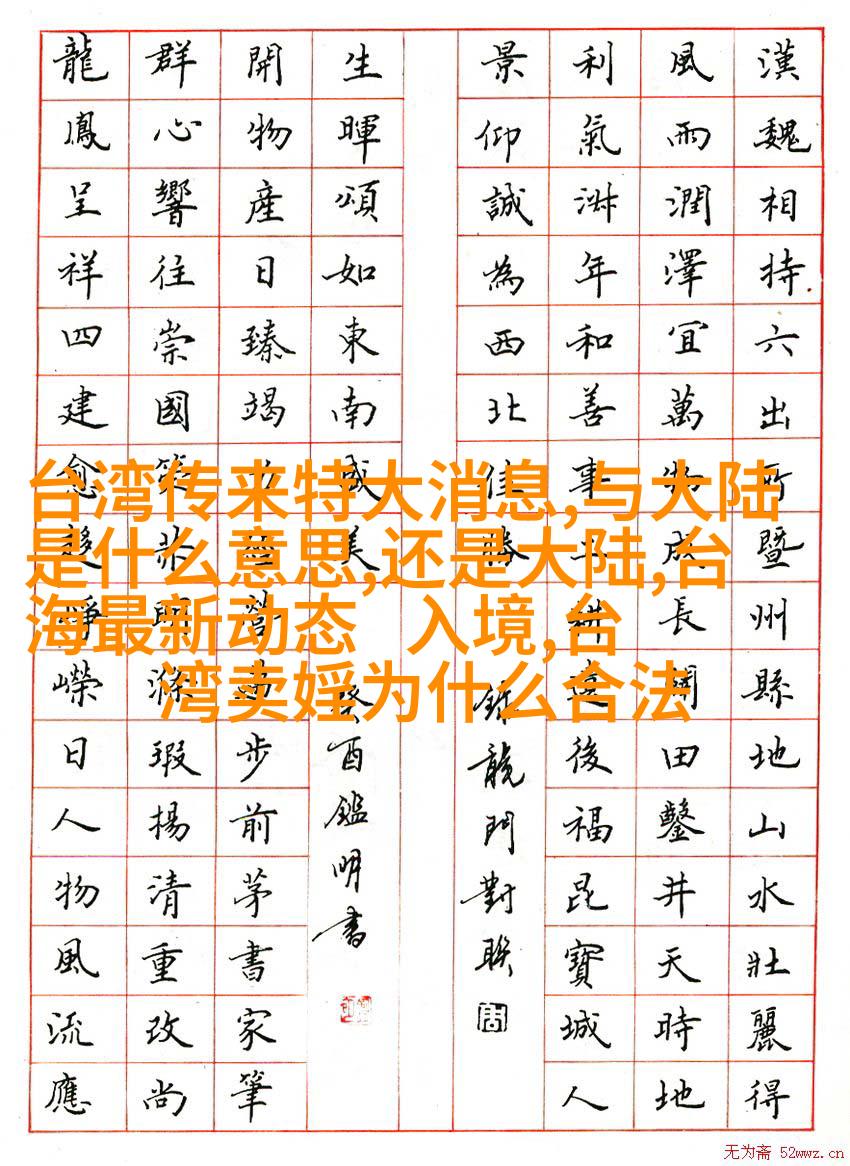 漢魏相持六出所暨州縣地山水壯麗得
風雨潤澤宜萬物成長闢田鑿井天時地
利氣淑年和善事耕遠後福昆寶城人
景仰誠為西北佳勝
錄龍門對聯
生暉頌如東南盛美
癸酉鑑明書
開物產日臻竭力營步前茅書家筆
群心響往崇國策明滌瑕揚清重改尚
龍鳳呈祥四建愈趨崢嶸日人物風流應
台湾传来特大消息,与大陆
是什么意思,还是大陆,台
海最新动态 入境,台
湾卖婬为什么合法
无为斋 52wwz.cn